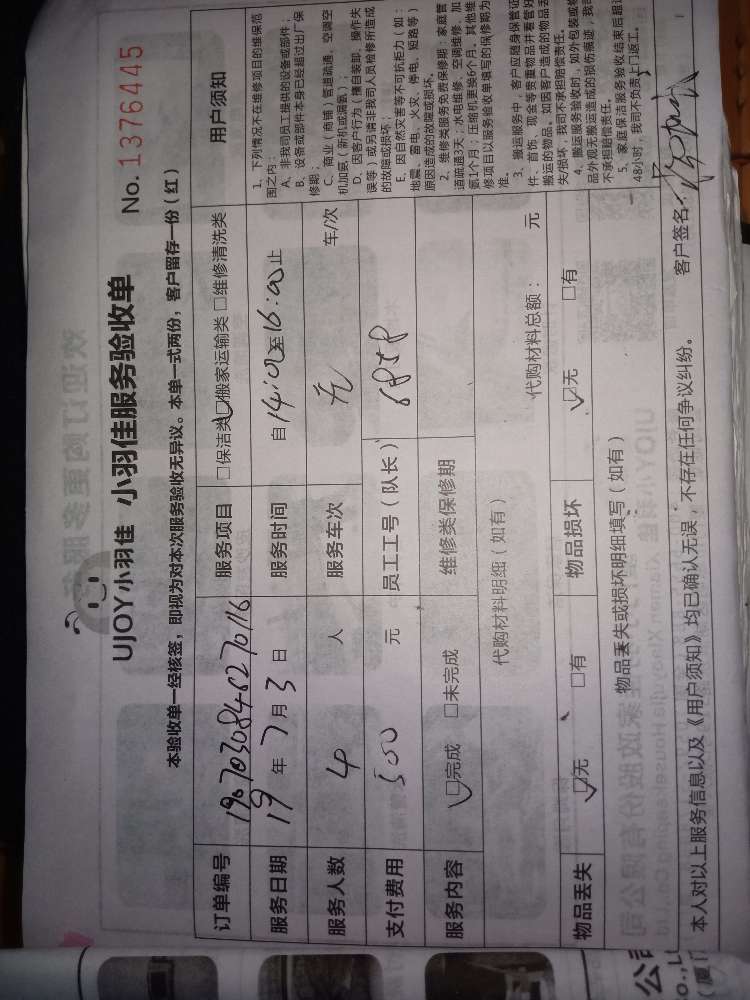 UJOY小羽佳 小羽佳服务验收单
No. 1376445
本验收单一经核签，即视为对本次服务验收无异议。本单一式两份，客户留存一份（红）
订单编号 服务项目 □保洁类 □搬家运输类 □维修清洗类 用户须知
服务日期 19年7月3日 服务时间 自14:00至16:00止
服务人数 4人 服务车次 车/次
支付费用 500元 员工工号（队长）
服务内容 □完成 □未完成 维修类保修期
代购材料明细（如有） 代购材料总额： 元
物品丢失 □无 □有 物品损坏 □无 □有
物品丢失或损坏明细填写（如有）
本人对以上服务信息以及《用户须知》均已确认无误，不存在任何争议纠纷。 客户签名：
1、下列情况不在维修项目的维保范
围之内：
A、非我司员工提供的设备或部件；
B、设备或部件本身已经超过出厂保
修期；
C、商业（商铺）管道疏通、空调空
机加氨（新机或漏氨）；
D、因客户行为（擅自装卸、操作失
误等）或另请非我司人员检修所造成
的故障或损坏；
E、因自然灾害等不可抗拒力（如：
地震、雷电、火灾、停电、短路等）
原因造成的故障或损坏。
2、维修类服务免费保修期：家庭管
道疏通3天；水电维修、空调维修、加
氨1个月；压缩机置换6个月，其他维
修项目以服务验收单填写的保修期为
准。
3、搬运服务中，客户应随身保管证
件、首饰、现金等贵重物品并看管好
搬运的物品。如因客户造成的物品丢
失/损坏，我司不承担赔偿责任。
4、搬运服务验收时，如外包装或物
品外观无搬运造成的损伤痕迹，我司
不承担赔偿责任。
5、家庭保洁服务验收结束后超过
48小时，我司不负责上门返工。